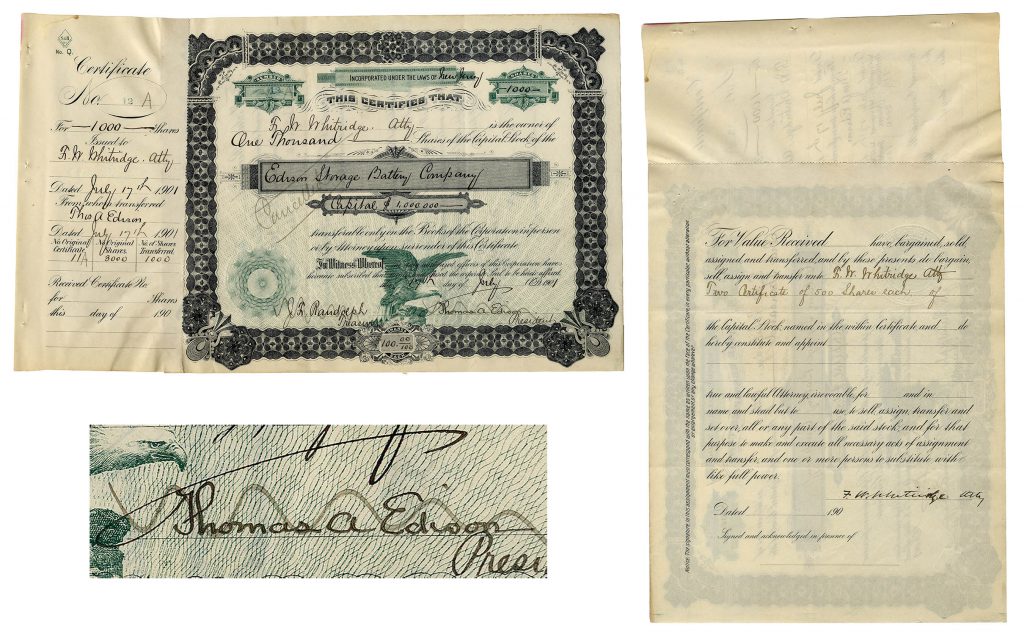 No. Q.
Certificate
No. 12 A
For 1000 Shares
Issued to
F. W. Whitridge. Atty
Dated July 17th 1901
From whom transferred
Thos A Edison
Dated July 17th 1901
No Original Certificate No Original Shares No. of Shares Transferred
11A 3000 1000
Received Certificate No
for Shares
this day of 190
NUMBER
INCORPORATED UNDER THE LAWS OF New Jersey
SHARES
1000
THIS CERTIFIES THAT
F. W. Whitridge. Atty is the owner of
One Thousand Shares of the Capital Stock of the
Edison Storage Battery Company
Capital $1,000,000
Cancelled
transferable only on the Books of the Corporation in person
or by Attorney upon surrender of this Certificate
In Witness Whereof
July 1901
J. F. Randolph Thomas A Edison
Treasurer President
SHARES
100.00/100
EACH
Thomas A Edison
Presi
For Value Received have bargained, sold
assigned and transferred, and by these presents do bargain,
sell, assign and transfer unto F. W. Whitridge Atty
Two Certificate of 500 Shares each of
the Capital Stock named in the within Certificate and do
hereby constitute and appoint
true and lawful Attorney, irrevocable, for and in
name and stead but to use, to sell, assign, transfer and
set over, all or any part of the said stock, and for that
purpose to make and execute all necessary acts of assignment
and transfer, and one or more persons to substitute with
like full power.
F. W. Whitridge Atty
Dated 190
Signed and acknowledged in presence of
Notice: The signature to this assignment must correspond with the name as written upon the face of the Certificate in every particular, without alteration
or enlargement or any change whatever.